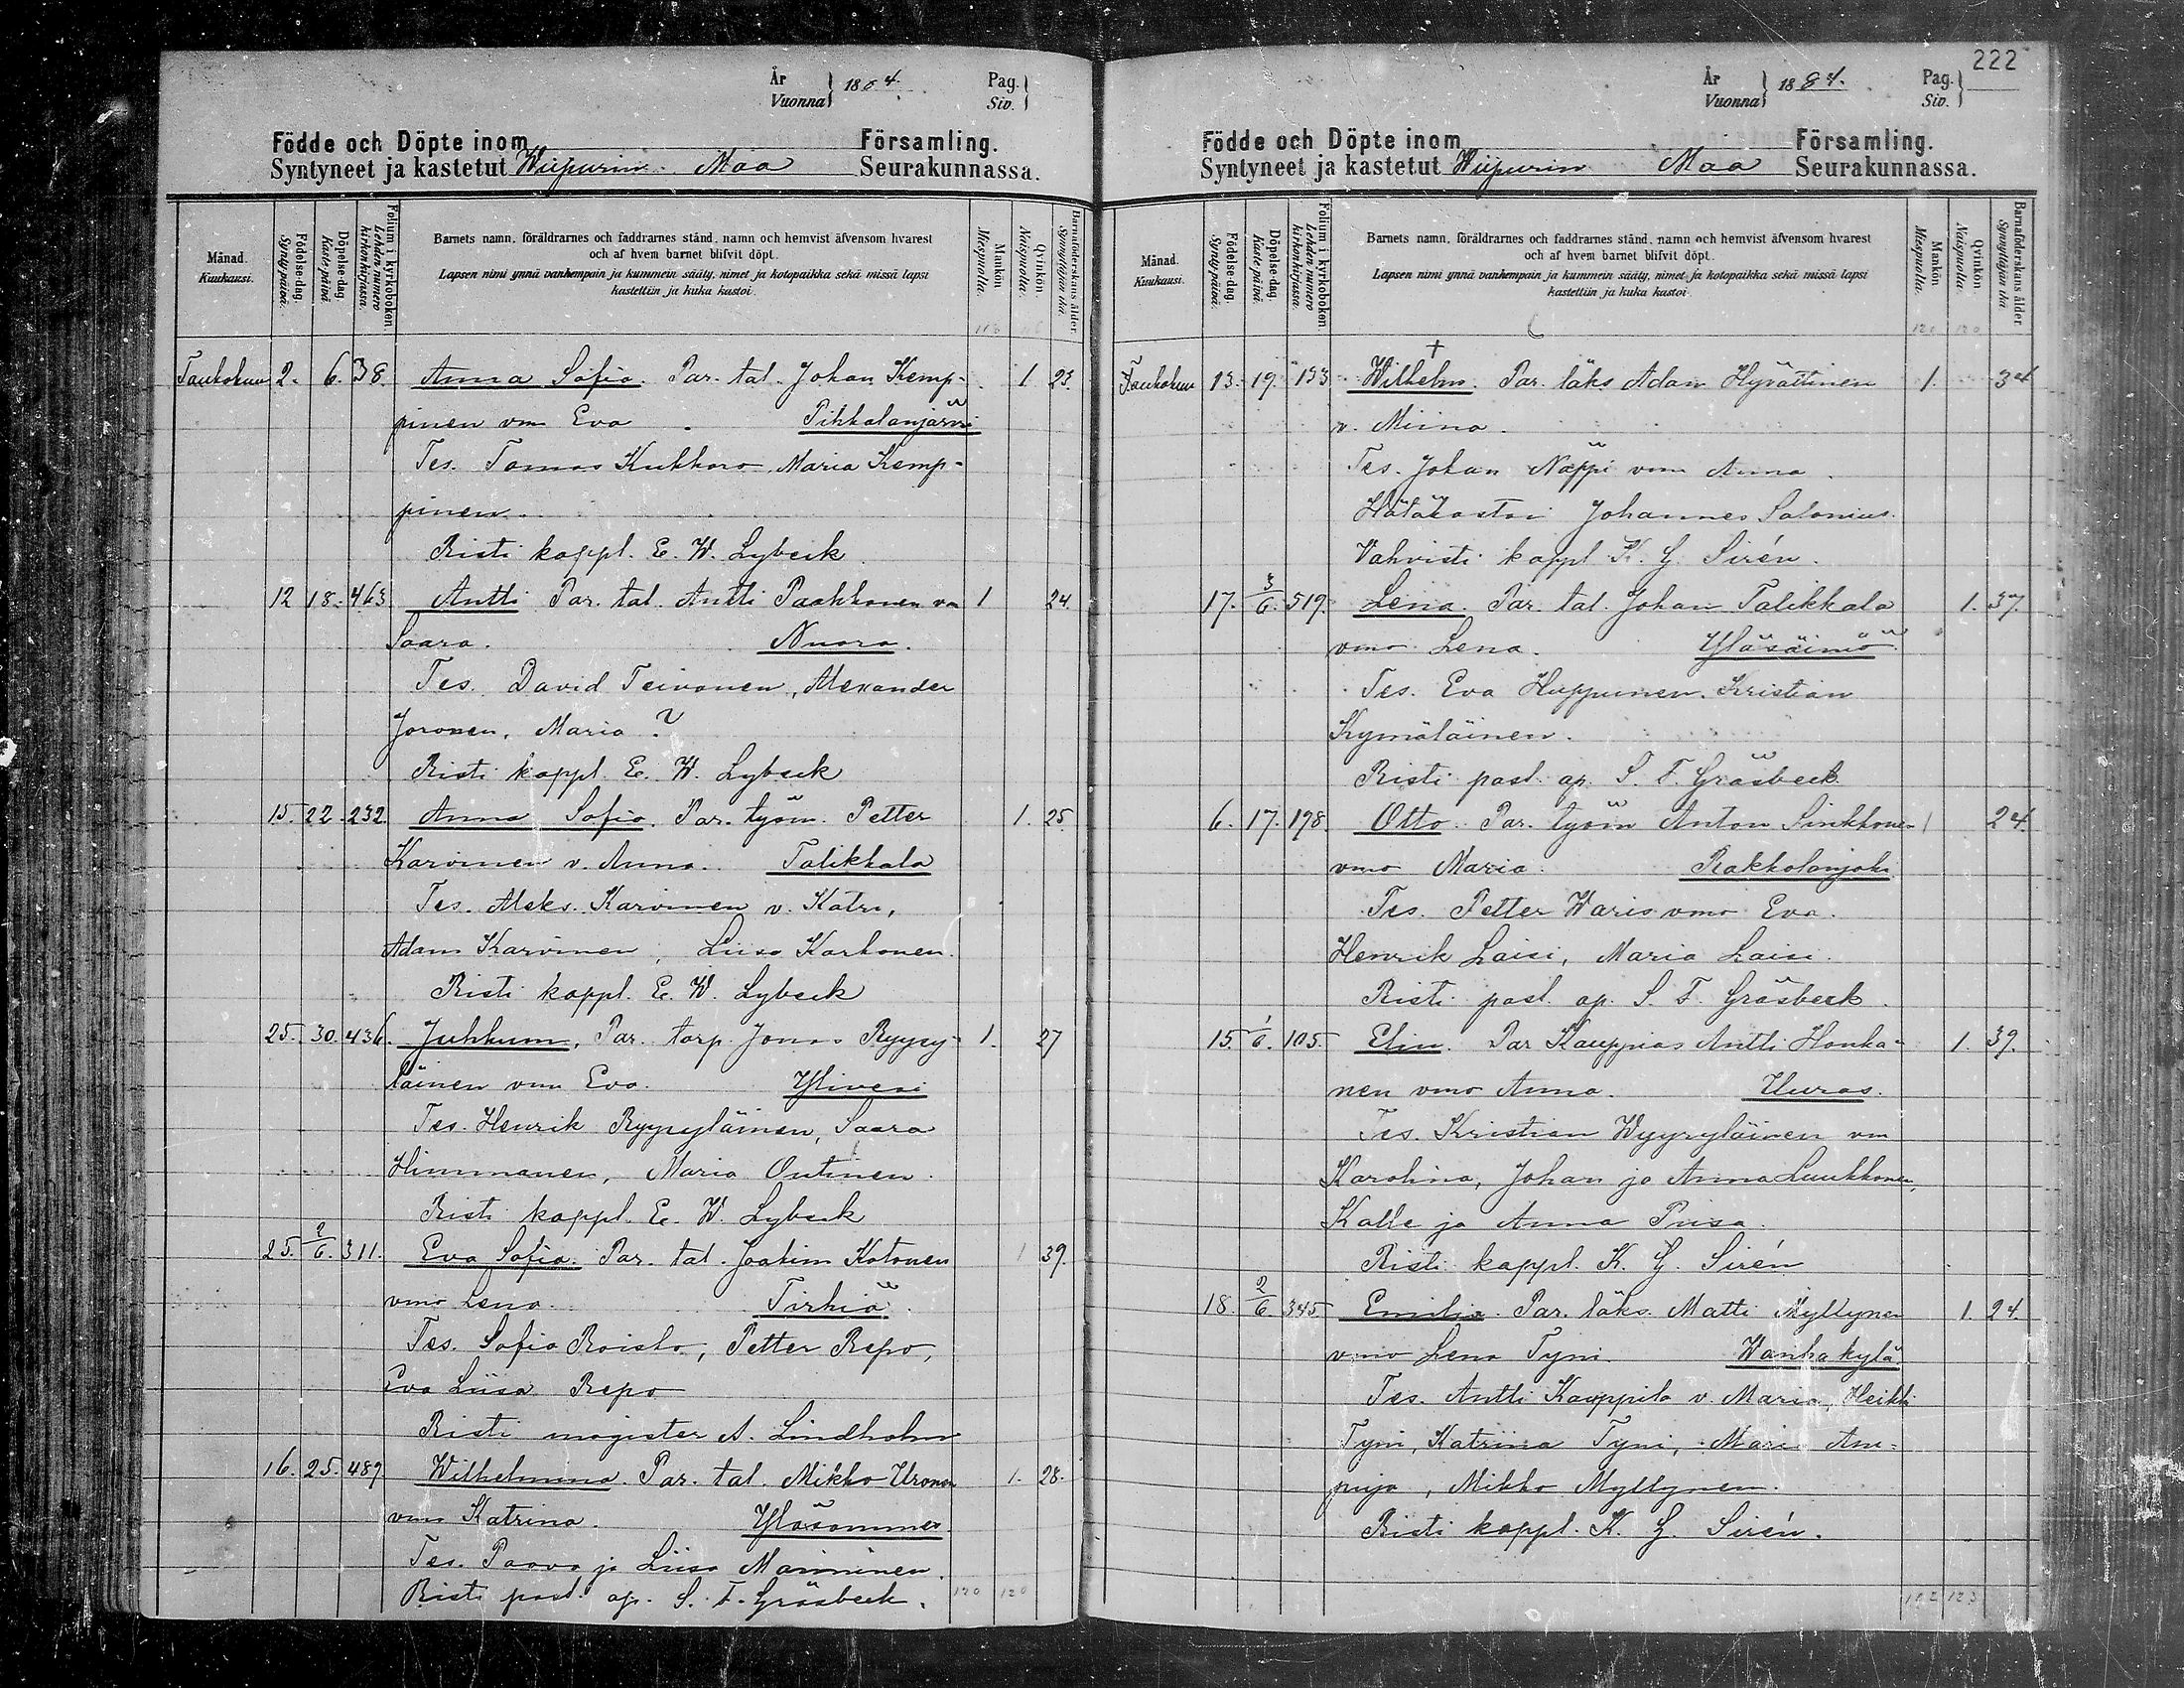 År
Vuonna
1884.
Pag.
Siv.
Födde och Döpte inom Församling.
Syntyneet ja kastetut Wiipurin Maa Seurakunnassa.
Månad.
Kuukausi.
Födelse-dag.
Synty päivä.
Döpelse-dag
Kaste päivä
Folium i kyrkoboken
Lehden numero
kirkonkirjassa.
Barnets namn, föräldrarnes och faddrarnes stånd, namn och hemvist äfvensom hvarest
och af hvem barnet blifvit döpt.
Lapsen nimi ynnä vanhempain ja kummein sääty, nimet ja kotopaikka sekä missä lapsi
kastettiin ja kuka kastoi.
Mankön
Miespuolia.
Qvinkön.
Naispuolia.
Barnaföderskans ålder.
Synnyttäjän ikä.
Toukokuu 2. 6. 38. Anna Sofia. Par. tal. Johan Kemp- 1 23.
pinen vm Eva. Pihkalanjärvi
Tes. Tomas Kukkoro, Maria Kemp-
pinen.
Risti kappl. E. W. Lybeck
12 18. 463 Antti Par. tal. Antti Paakkonen vm 1 24.
Saara. Nuora.
Tes. David Teivonen, Alexander
Joronen, Maria ?
Risti kappl. E. W. Lybeck
15. 22. 232. Anna Sofia. Par. työm. Petter 1. 25.
Karvinen v. Anna. Talikkala
Tes. Aleks. Karvinen v. Katri,
Adam Karvinen, Liisa Karhonen.
Risti kappl. E. W. Lybeck
25. 30. 436. Juhkum. Par. torp. Jonas Ryysy- 1. 27
läinen vm Eva. Ylivesi
Tes. Henrik Ryysyläinen, Saara
Himmanen, Maria Outinen.
Risti kappl. E. W. Lybeck
25. 2/6. 311. Eva Sofia. Par. tal. Joakim Kotonen 1 39.
vmo Lena. Tirhiä.
Tes. Sofia Roisko, Petter Repo,
Eva Liisa Repo
Risti magister A. Lindholm
16. 25. 489 Wilhelmina. Par. tal. Mikko Uronen 1. 28.
vmo Katrina. Yläsommee
Tes. Paavo ja Liisa Manninen.
Risti past. ap. S. F. Gräsbeck.
120 120
222
År
Vuonna
1884.
Pag.
Siv.
Födde och Döpte inom Församling.
Syntyneet ja kastetut Wiipurin Maa Seurakunnassa.
Månad.
Kuukausi.
Födelse-dag.
Synty päivä.
Döpelse-dag.
Kaste päivä.
Folium i kyrkoboken
Lehden numero
kirkonkirjassa.
Barnets namn, föräldrarnes och faddrarnes stånd, namn och hemvist äfvensom hvarest
och af hvem barnet blifvit döpt.
Lapsen nimi ynnä vanhempain ja kummein sääty, nimet ja kotopaikka sekä missä lapsi
kastettiin ja kuka kastoi.
Mankön
Miespuolia.
Qvinkön
Naispuolia.
Barnaföderskans ålder.
Synnyttäjän ikä
120 120
Toukokuu 13. 19. 133 Wilhelm. Par. läks Adam Hyvättinen 1. 34
v. Miina.
Tes. Johan Näppi vm Anna.
Hätäkastoi Johannes Salonius.
Vahvisti kappl K. G. Sirén.
17. 3/6. 519. Lena. Par. tal. Johan Talikkala 1. 37.
vmo Lena. Yläsäiniö.
Tes. Eva Huppunen, Kristian
Kymäläinen.
Risti past. ap. S. F. Gräsbeck
6. 17. 198. Otto. Par. työm Anton Sinkkonen 1 24.
vmo Maria. Rakkolanjoki
Tes. Petter Waris vmo Eva.
Henrik Laisi, Maria Laisi.
Risti past. ap. S. F. Gräsbeck.
15. 1/6. 105. Elin. Par Kauppias Antti Honka- 1. 39.
nen vmo Anna. Uuras.
Tes. Kristian Wyyryläinen vm
Karolina, Johan ja Anna Luukkonen,
Kalle ja Anna Pusa.
Risti kappl. K. G. Sirén
18. 2/6. 345 Emilia. Par. läks. Matti Myllynen 1. 24.
vmo Lena Tyni. Wanhakylä.
Tes. Antti Kauppila v. Maria, Heikki
Tyni, Katriina Tyni, Mari Am-
puja, Mikko Myllynen.
Risti kappl. K. G. Sirén.